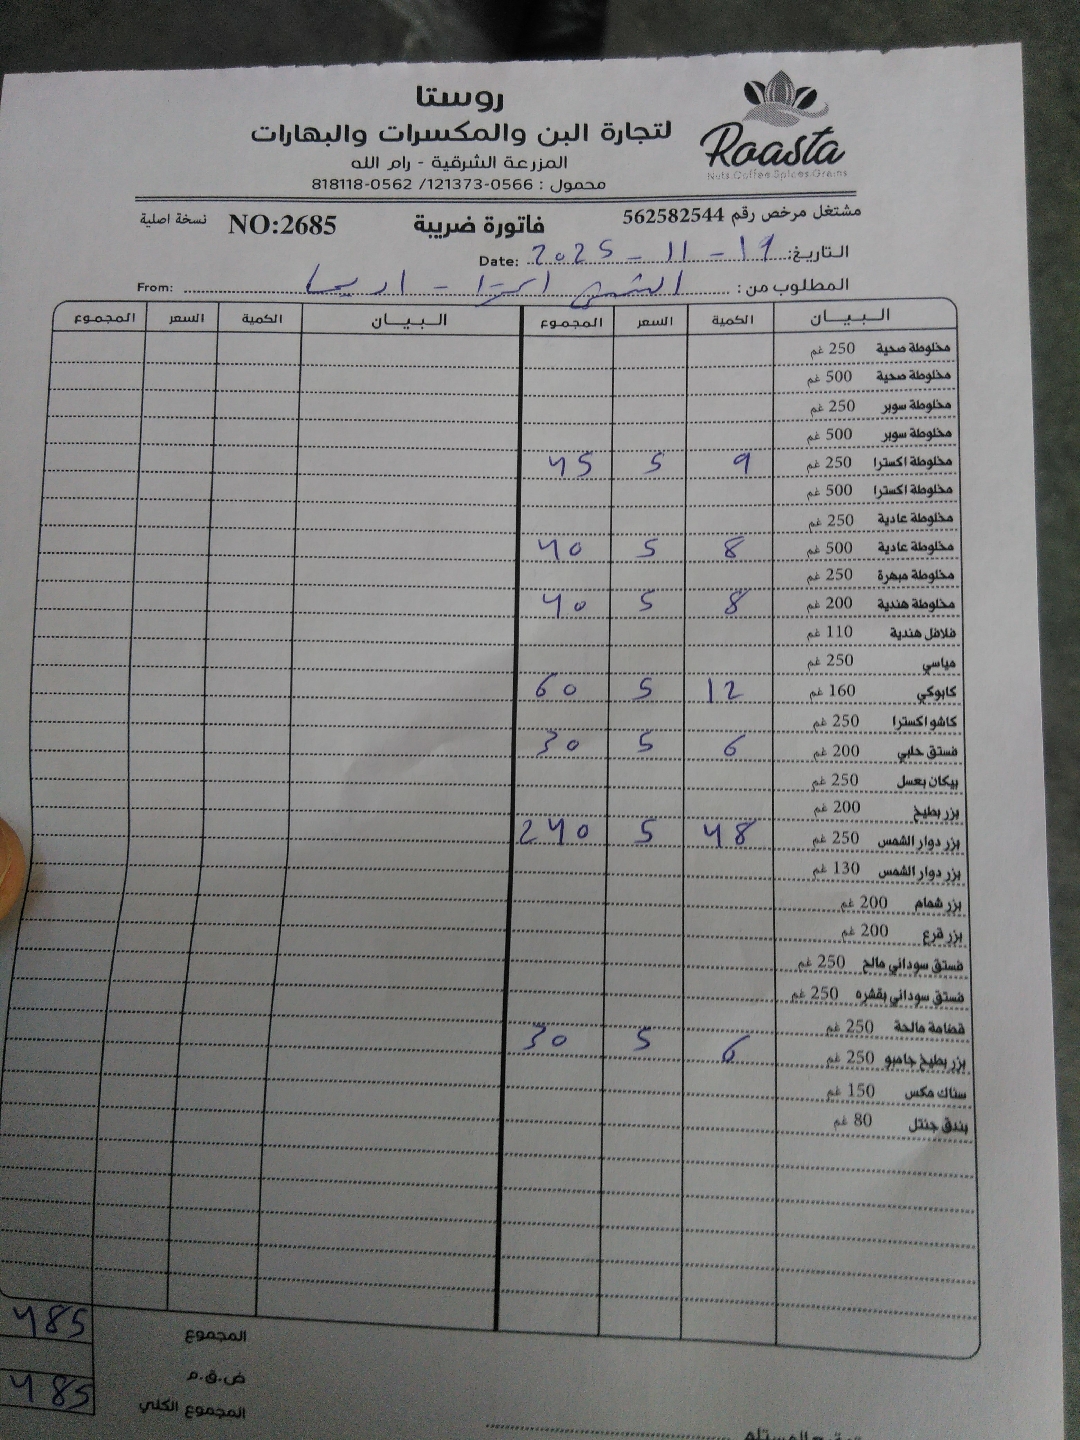 روستا
لتجارة البن والمكسرات والبهارات
المزرعة الشرقية - رام الله
محمول : 0566-121373/ 0562-818118
Roasta
Nuts.Coffee.Spices.Grains
مشتغل مرخص رقم 562582544
فاتورة ضريبة
NO:2685
نسخة اصلية
التاريخ: 19 - 11 - 2025 Date:
المطلوب من: From:
البيان الكمية السعر المجموع البيان الكمية السعر المجموع
مخلوطة صحية 250 غم
مخلوطة صحية 500 غم
مخلوطة سوبر 250 غم
مخلوطة سوبر 500 غم
مخلوطة اكسترا 250 غم 9 5 45
مخلوطة اكسترا 500 غم
مخلوطة عادية 250 غم
مخلوطة عادية 500 غم 8 5 40
مخلوطة مبهرة 250 غم
مخلوطة هندية 200 غم 8 5 40
فلافل هندية 110 غم
مياسي 250 غم
كابوكي 160 غم 12 5 60
كاشو اكسترا 250 غم
فستق حلبي 200 غم 6 5 30
بيكان بعسل 250 غم
بزر بطيخ 200 غم
بزر دوار الشمس 250 غم 48 5 240
بزر دوار الشمس 130 غم
بزر شمام 200 غم
بزر قرع 200 غم
فستق سوداني مالح 250 غم
فستق سوداني بقشره 250 غم
قضامة مالحة 250 غم
بزر بطيخ جامبو 250 غم 6 5 30
سناك مكس 150 غم
بندق جنتل 80 غم
المجموع 485
ض.ق.م
المجموع الكلي 485